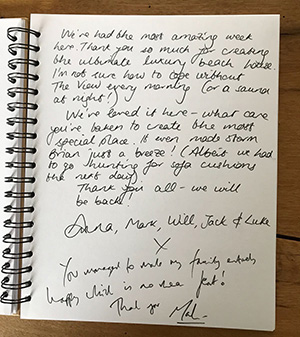 We've had the most amazing week
here. Thank you so much for creating
the ultimate luxury beach house.
I'm not sure how to cope without
The View every morning (or a sauna
at night!)
We've loved it here - what care
you've taken to create the most
special place. It even made storm
Brian just a breeze! (Albeit we had
to go hunting for sofa cushions
the next day).
Thank you all - we will
be back!
Anna, Mark, Will, Jack & Luke
X
You managed to make my family entirely
happy which is no mean feat!
Thank you